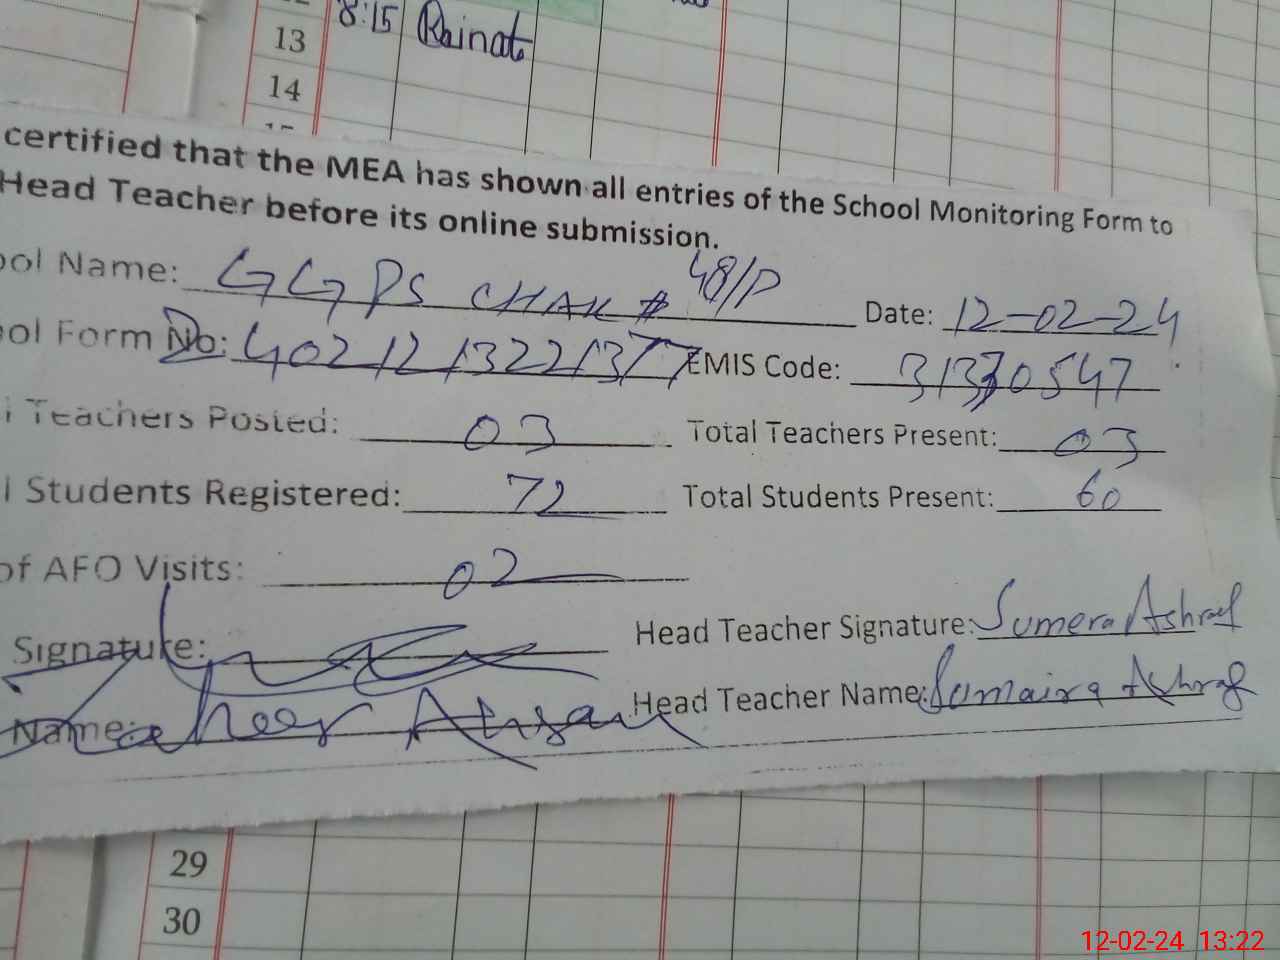 13 8:15 Rainat
14
certified that the MEA has shown all entries of the School Monitoring Form to
Head Teacher before its online submission.
ool Name: GGPS CHAK # 48/P Date: 12-02-24
ool Form No: 4021213221377 EMIS Code: 31330547
l Teachers Posted: 03 Total Teachers Present: 03
l Students Registered: 72 Total Students Present: 60
of AFO Visits: 02
Signature: Head Teacher Signature: Sumera Ashraf
Name: Head Teacher Name: Sumaira Ashraf
29
30
12-02-24 13:22